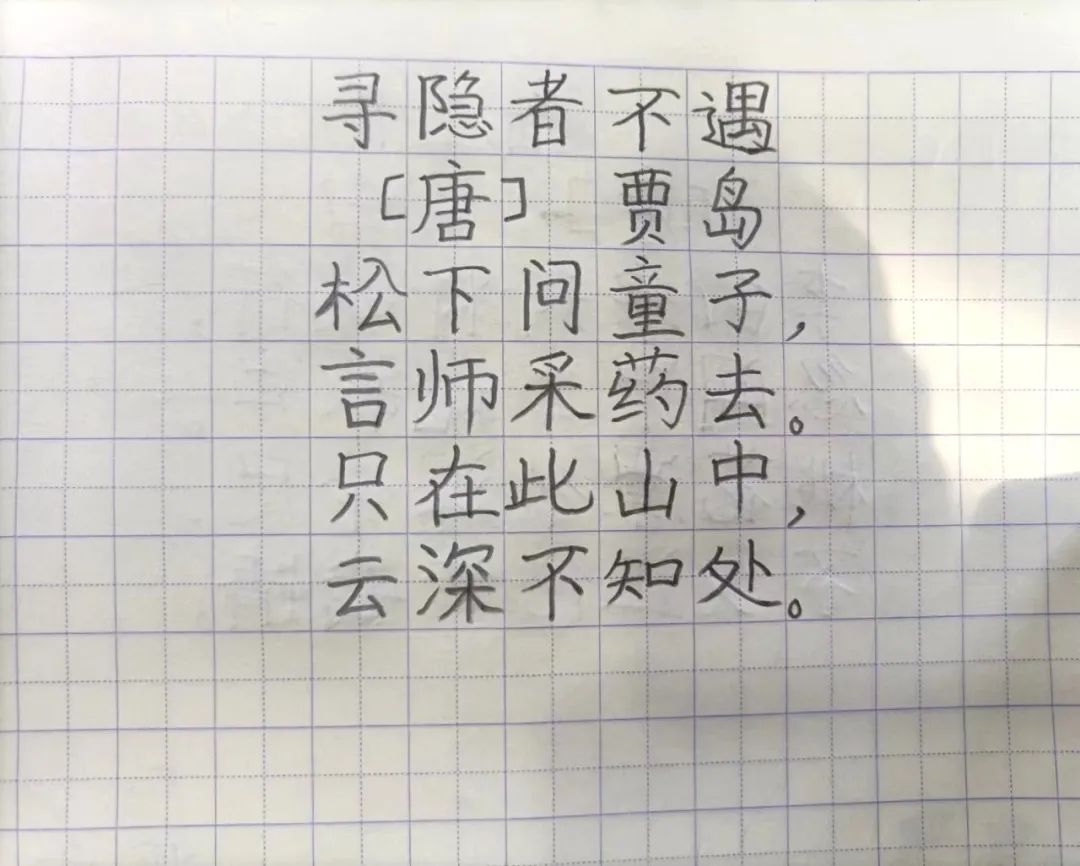 寻隐者不遇
[唐] 贾岛
松下问童子,
言师采药去。
只在此山中,
云深不知处。